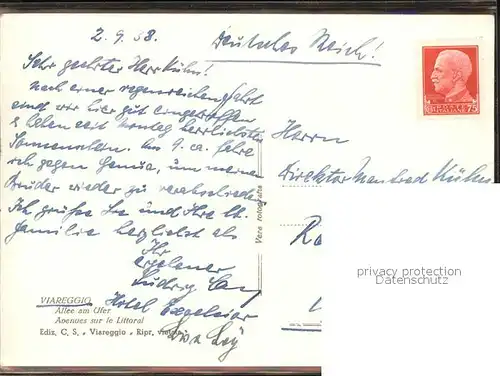 2.9.38.
Deutsches Reich!
Sehr geehrter Herr Kühn!
Nach einer regenreichen Fahrt
sind wir hier gut eingetroffen
& haben seit Montag herrlichsten
Sonnenschein. Am 9. ca. fahre
ich gegen Genua, um meinen
Bruder wieder zu verabschieden.
Ich grüße Sie und Ihre lb.
Familie herzlichst als
Ihr
ergebener
Ludwig
Hotel Excelsior
Herrn
Direktor Manfred Kühn
POSTE ITALIANE
75
Vera fotografia
privacy protection
Datenschutz
VIAREGGIO
Allee am Ufer
Avenues sur le Littoral
Ediz. C, S. - Viareggio - Ripr. vietata